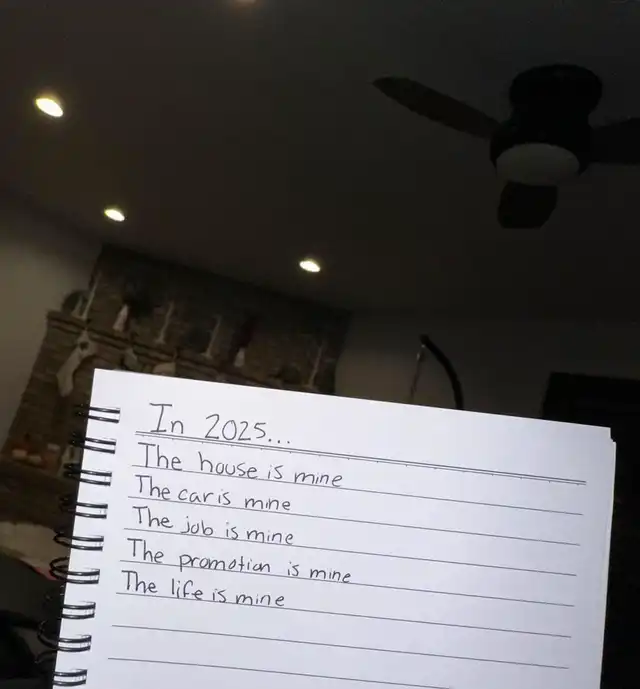 In 2025...
The house is mine
The car is mine
The job is mine
The promotion is mine
The life is mine